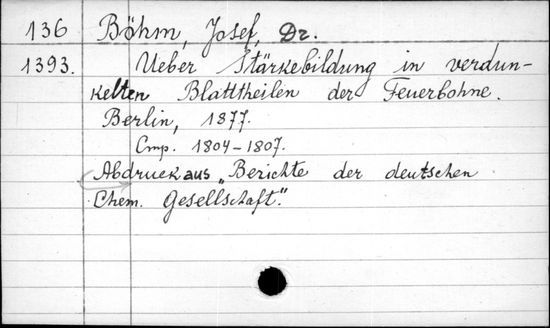 136 Böhm, Josef, Dr.
1393. Ueber Stärkebildung in verdun-
kelten Blatttheilen der Feuerbohne.
Berlin, 1877.
Стр. 1804-1807.
Abdruck aus „Berichte der deutschen
Chem. Gesellschaft."